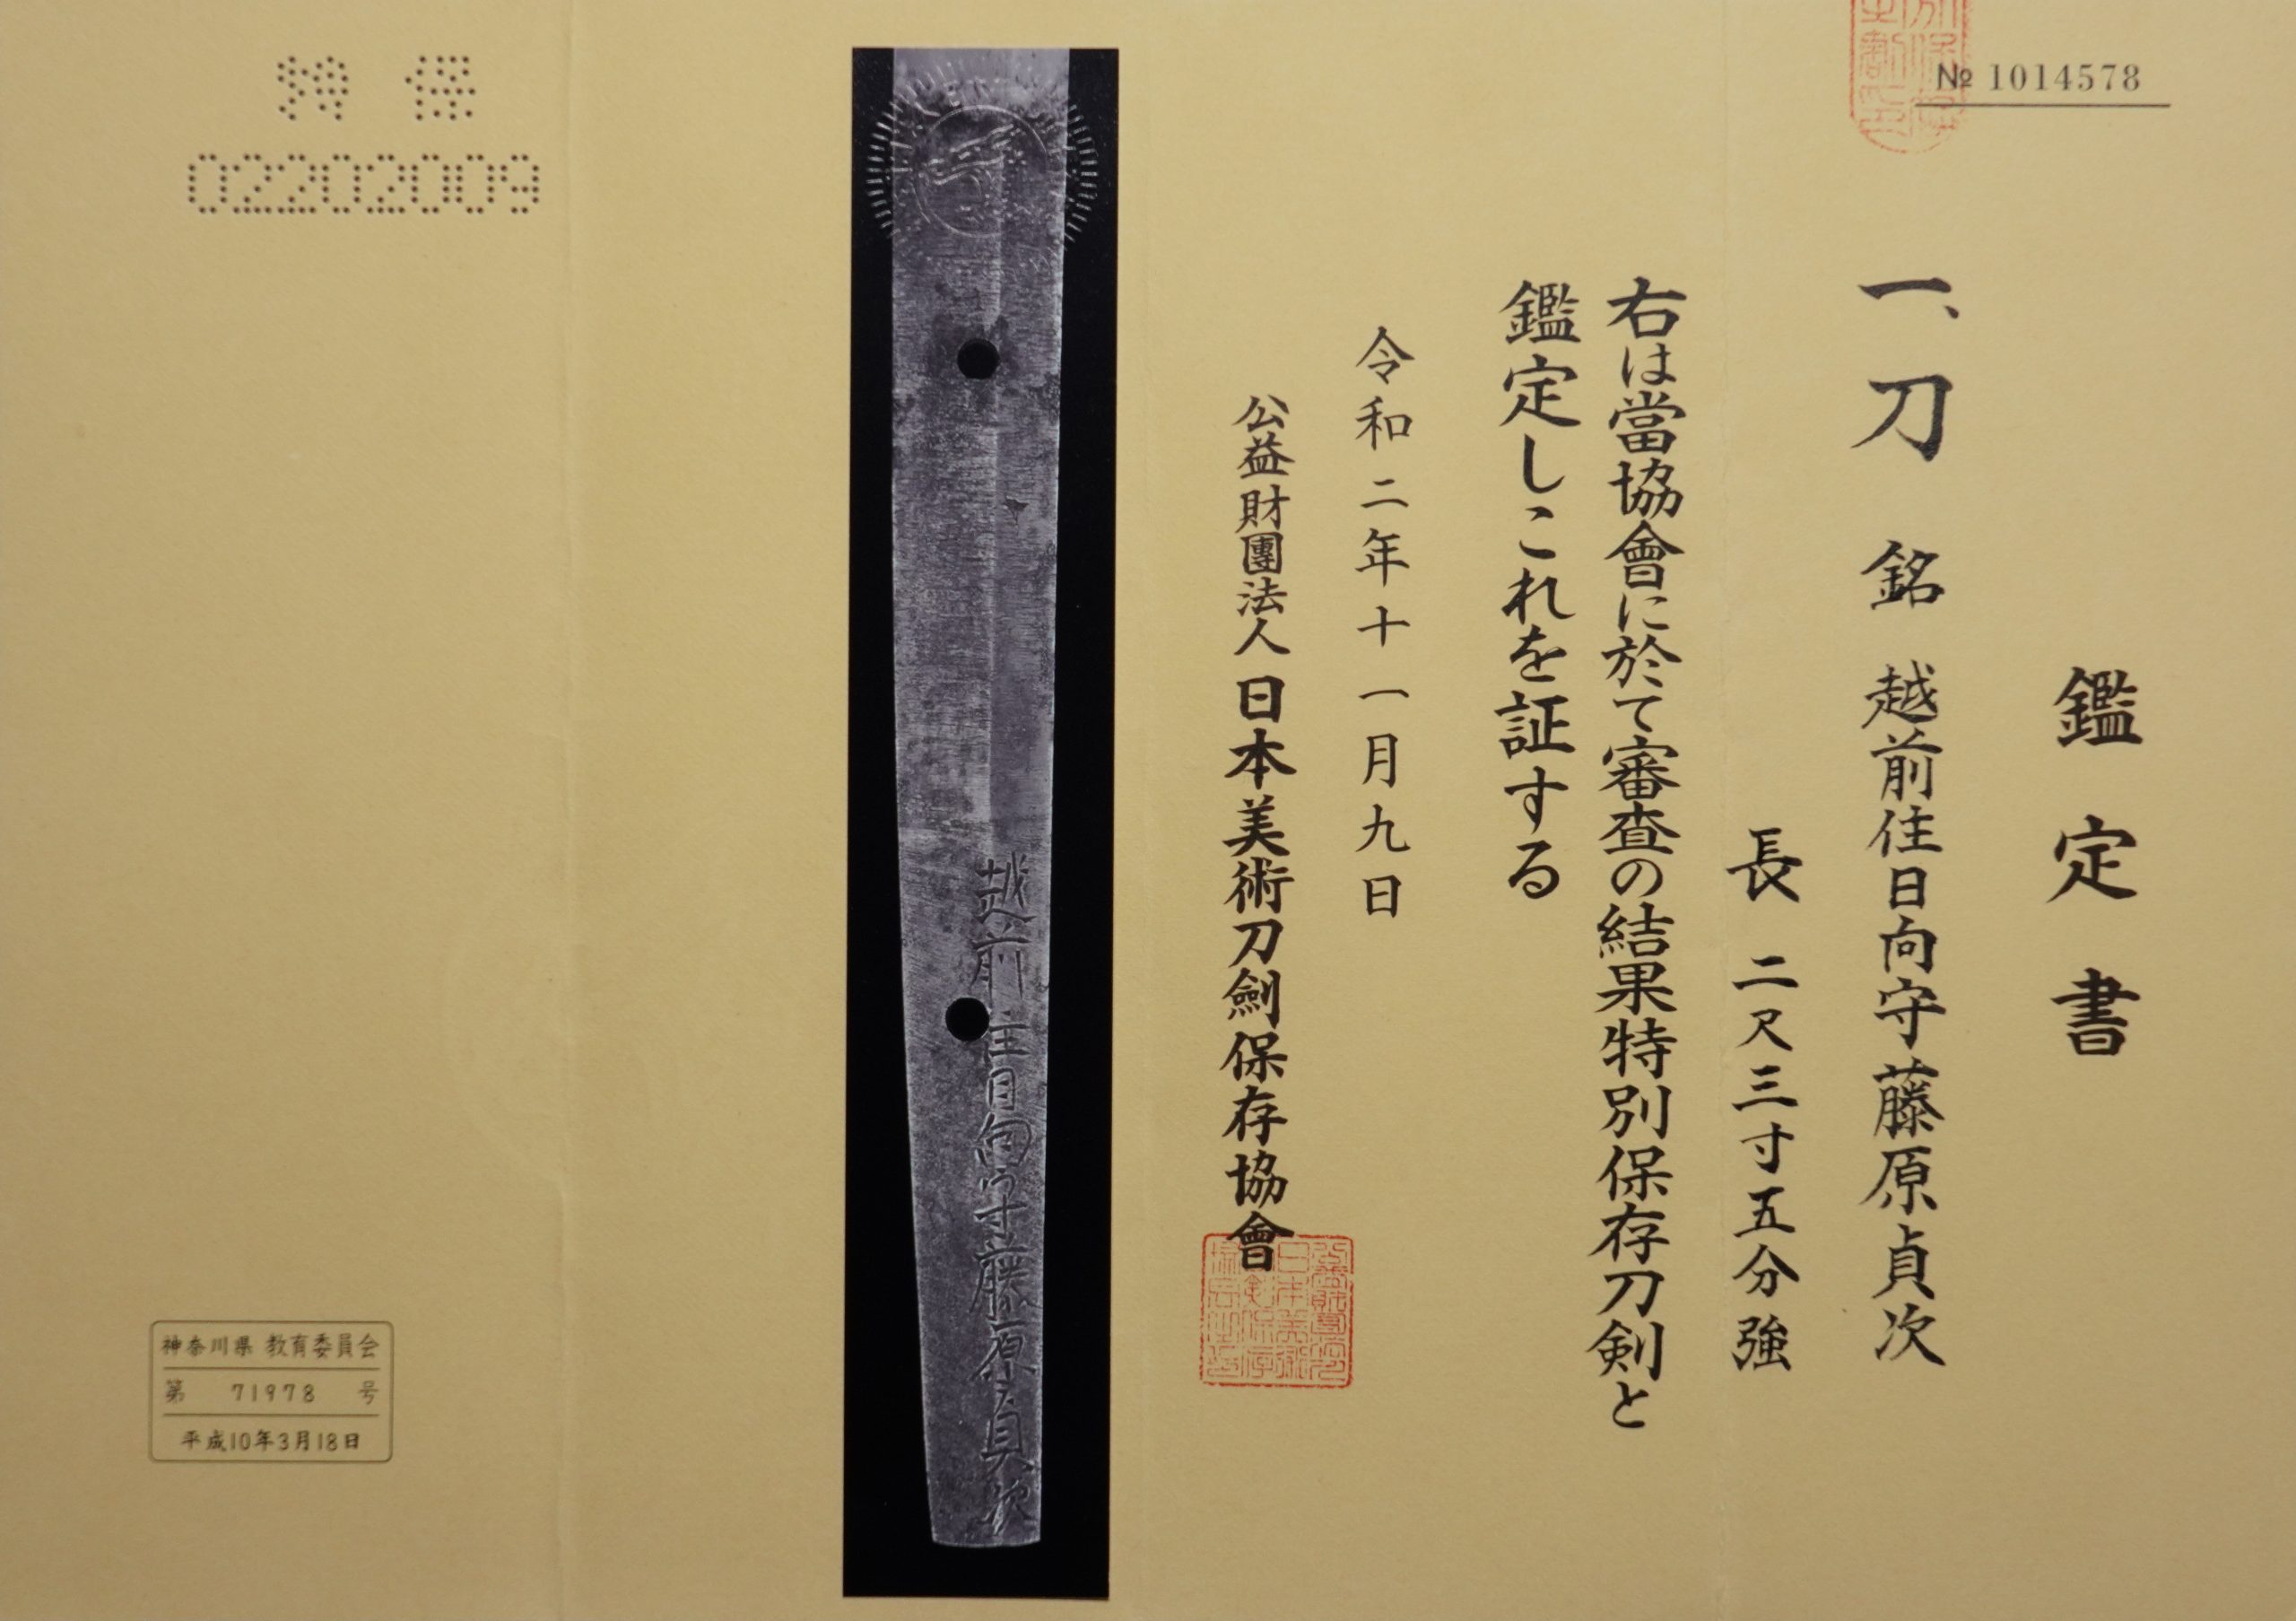 № 1014578
鑑定書
一、刀 銘 越前住日向守藤原貞次
長 二尺三寸五分強
右は當協會に於て審査の結果特別保存刀剣と
鑑定しこれを証する
令和二年十一月九日
公益財團法人 日本美術刀劍保存協會
越前住日向守藤原貞次
特保
02202009
神奈川県 教育委員会
第 71978 号
平成10年3月18日